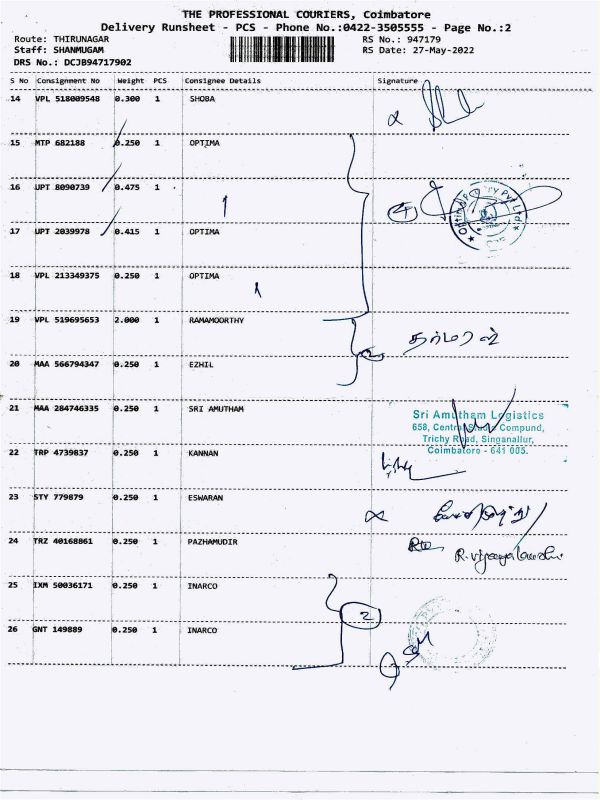 THE PROFESSIONAL COURIERS, Coimbatore
Delivery Runsheet - PCS - Phone No.:0422-3505555 - Page No.:2
Route: THIRUNAGAR RS No.: 947179
Staff: SHANMUGAM RS Date: 27-May-2022
DRS No.: DCJB94717902
S No Consignment No Weight PCS Consignee Details Signature
14 VPL 518009548 0.300 1 SHOBA
15 MTP 682188 0.250 1 OPTIMA
16 UPT 8090739 0.475 1
4
17 UPT 2039978 0.415 1 OPTIMA
18 VPL 213349375 0.250 1 OPTIMA
19 VPL 519695653 2.000 1 RAMAMOORTHY
20 MAA 566794347 0.250 1 EZHIL
21 MAA 284746335 0.250 1 SRI AMUTHAM
Sri Amutham Logistics
658, Central Studio Compund,
Trichy Road, Singanallur,
Coimbatore - 641 005.
22 TRP 4739837 0.250 1 KANNAN
23 STY 779879 0.250 1 ESWARAN
24 TRZ 40168861 0.250 1 PAZHAMUDIR
R. Vijayalakshmi
25 IXM 50036171 0.250 1 INARCO
2
26 GNT 149889 0.250 1 INARCO